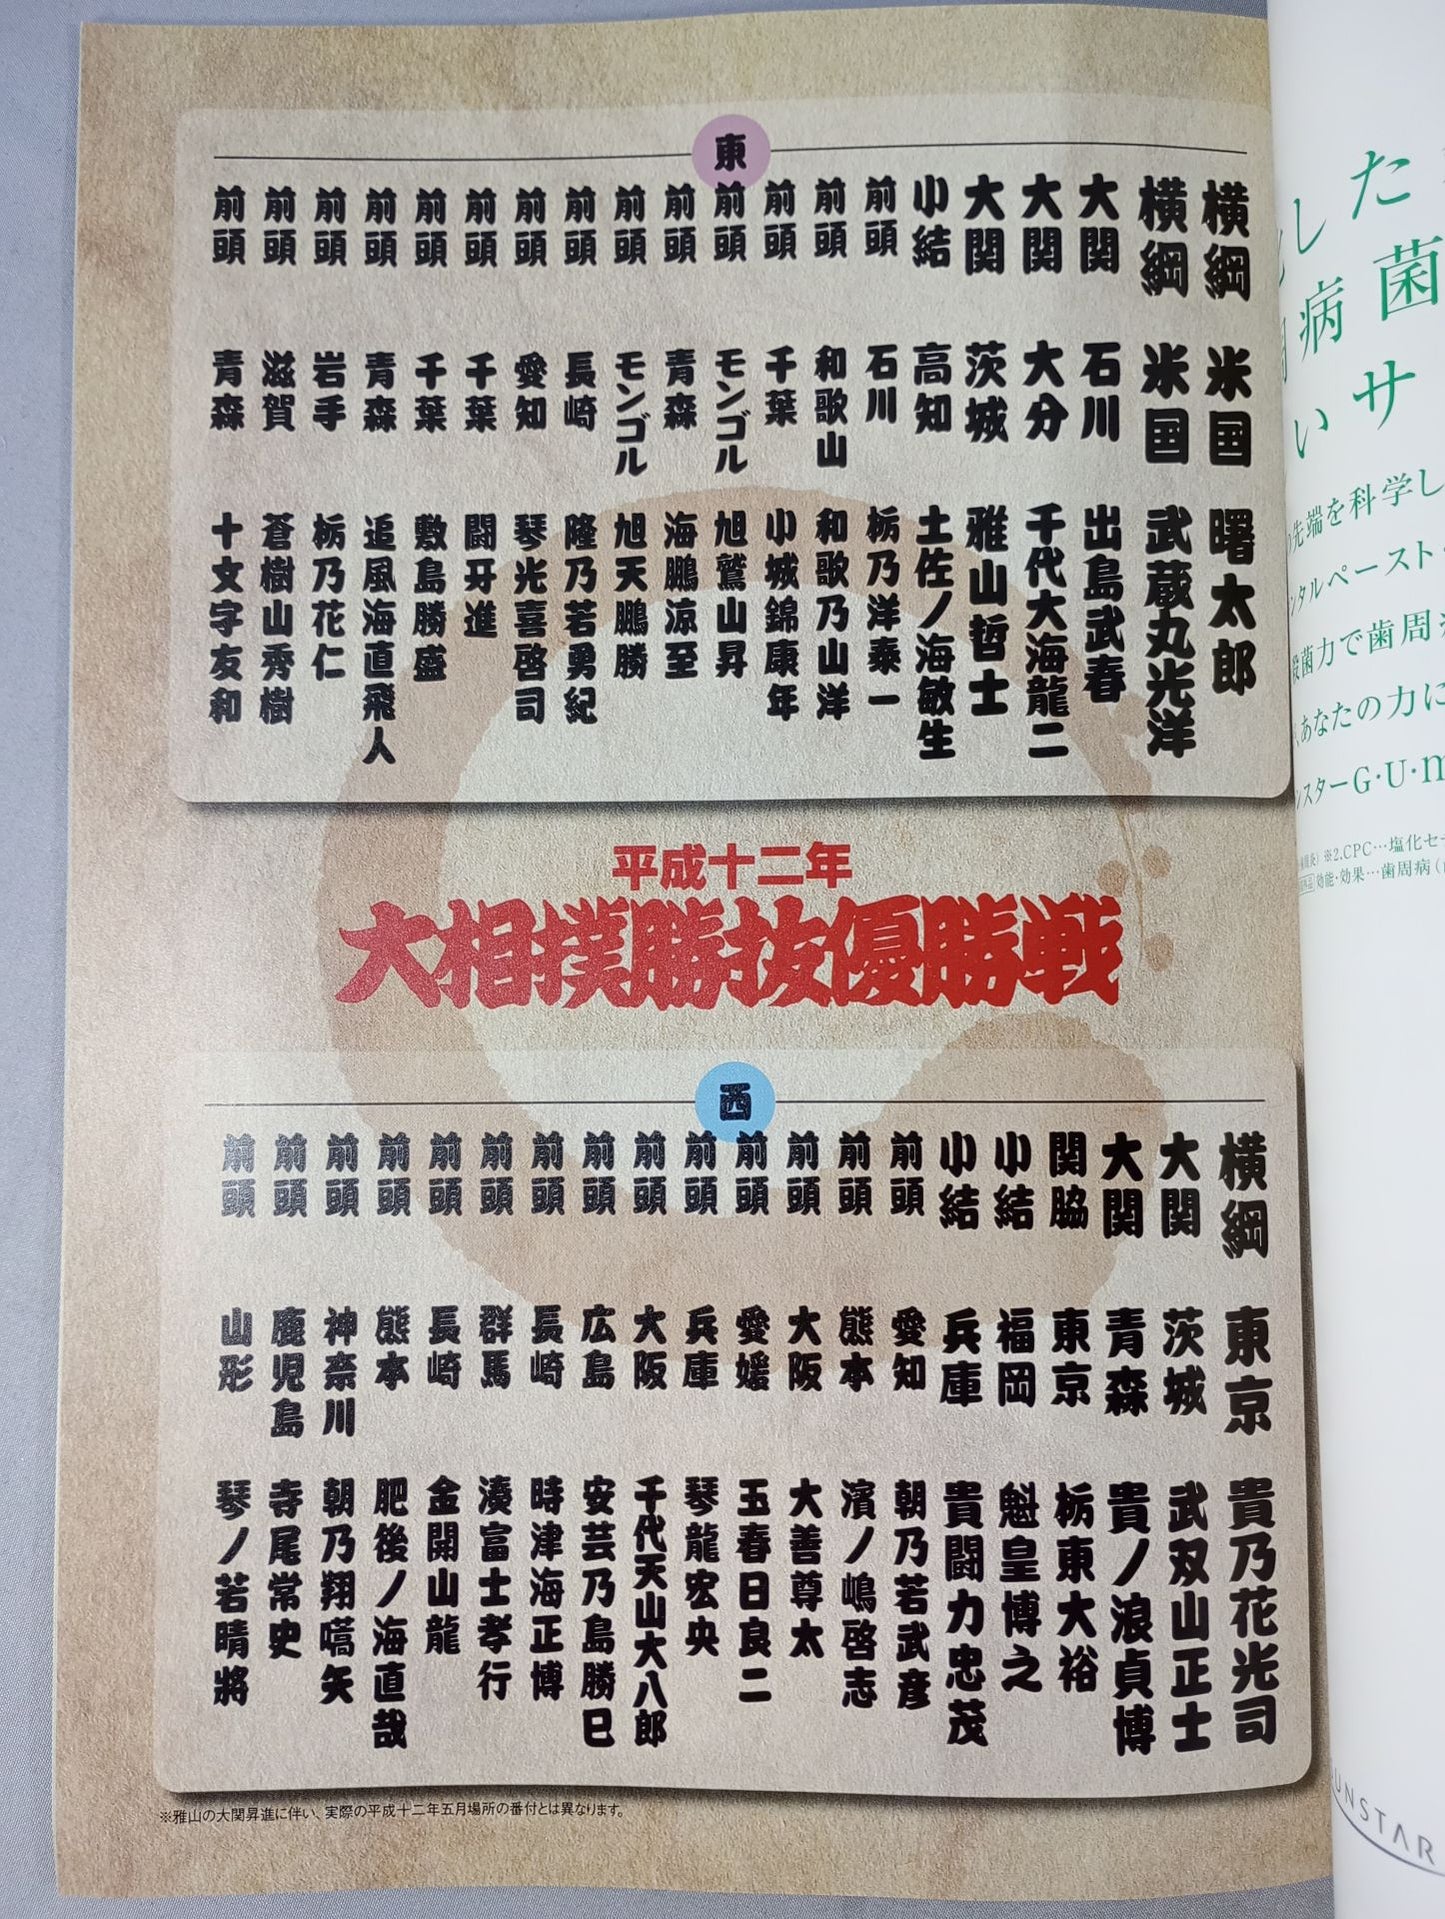 東
横綱 米国 曙太郎
横綱 米国 武蔵丸光洋
大関 石川 出島武春
大関 大分 千代大海龍二
大関 茨城 雅山哲士
小結 高知 土佐ノ海敏生
前頭 石川 栃乃洋泰一
前頭 和歌山 和歌乃山洋
前頭 千葉 小城錦康年
前頭 モンゴル 旭鷲山昇
前頭 青森 海鵬涼至
前頭 モンゴル 旭天鵬勝
前頭 長崎 隆乃若勇紀
前頭 愛知 琴光喜啓司
前頭 千葉 闘牙進
前頭 千葉 敷島勝盛
前頭 青森 追風海直飛人
前頭 岩手 栃乃花仁
前頭 滋賀 蒼樹山秀樹
前頭 青森 十文字友和
平成十二年
大相撲勝抜優勝戦
西
横綱 東京 貴乃花光司
大関 茨城 武双山正士
大関 青森 貴ノ浪貞博
関脇 東京 栃東大裕
小結 福岡 魁皇博之
小結 兵庫 貴闘力忠茂
前頭 愛知 朝乃若武彦
前頭 熊本 濱ノ嶋啓志
前頭 大阪 大善尊太
前頭 愛媛 玉春日良二
前頭 兵庫 琴龍宏央
前頭 大阪 千代天山大八郎
前頭 広島 安芸乃島勝巳
前頭 長崎 時津海正博
前頭 群馬 湊富士孝行
前頭 長崎 金開山龍
前頭 熊本 肥後ノ海直哉
前頭 神奈川 朝乃翔嚆矢
前頭 鹿児島 寺尾常史
前頭 山形 琴ノ若晴將
※雅山の大関昇進に伴い、実際の平成十二年五月場所の番付とは異なります。
した
病菌
いサ
先端を科学し
ンタルペースト
殺菌力で歯周
あなたの力に
スターG・U・m
※2.CPC…塩化セ
効能・効果…歯周病（
UNSTAR